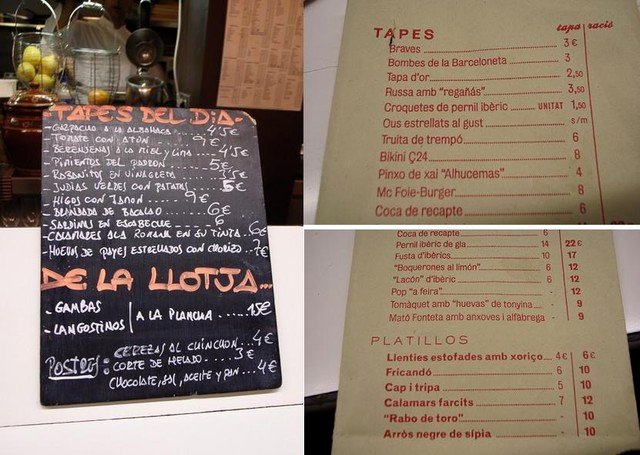 -TAPES DEL DiA-
-GAZPACHO A LA ALBAHACA ..... 4'5€
-TOMATE CON ATÚN ..... 9€
-BERENJENAS A LA MIEL Y LIMA ... 4'5€
-PIMIENTOS DEL PADRON ..... 5€
-BOQUERONES EN VINAGRETA ... 3'5€
-JUDIAS VERDES CON PATATAS ... 5€
-HIGOS CON JAMON ..... 9€
-BRANDADA DE BACALAO ..... 6€
-SARDINAS EN ESCABECHE ..... 6
-CALAMARES A LA ROMANA EN SU TINTA ... 6€
-HUEVOS DE PAYES ESTRELLADOS CON CHORIZO ... 7€
DE LA LLOTJA...
-GAMBAS
-LANGOSTINOS
A LA PLANCHA ..... 15€
POSTRES:
CEREZAS AL CHINCHON ... 4€
CORTE DE HELADO ... 3€
CHOCOLATE, SAL, ACEITE Y PAN ... 4€
TAPES tapa ració
Braves 3€
Bombes de la Barceloneta 3
Tapa d'or 2,50
Russa amb "regañás" 3,50
Croquetes de pernil ibèric UNITAT 1,50
Ous estrellats al gust s/m
Truita de trempó 6
Bikini Ç24 8
Pinxo de xai "Alhucemas" 4
Mc Foie-Burger 8
Coca de recapte 6
Coca de recapte 6
Pernil ibèric de gla 14 22€
Fusta d'ibèrics 10 17
"Boquerones al limón" - 12
"Lacón" d'ibèric 6 12
Pop "a feira" - 12
Tomàquet amb "huevas" de tonyina - 9
Mató Fonteta amb anxoves i alfàbrega - 9
PLATILLOS
Llenties estofades amb xoriço 4€ 6€
Fricandó 6 10
Cap i tripa 5 10
Calamars farcits 7 12
"Rabo de toro" - 10
Arròs negre de sípia - 10